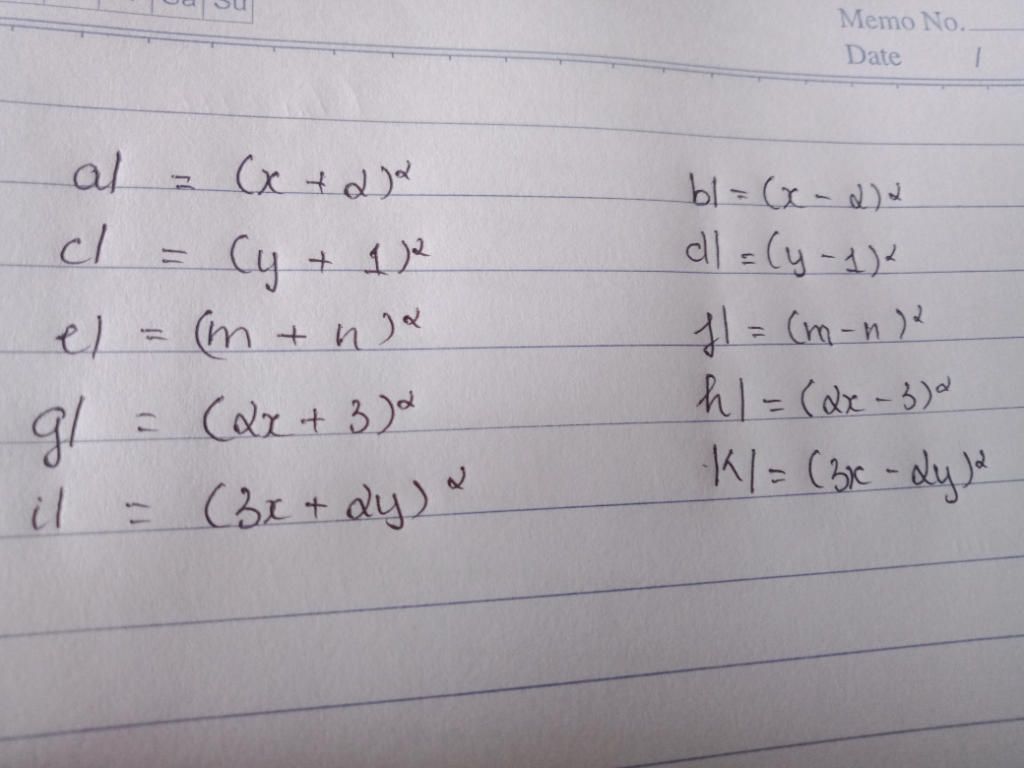 Sa Su
Memo No.
Date /
a/ = (x + 2)²
b/ = (x - 2)²
c/ = (y + 1)²
d/ = (y - 1)²
e/ = (m + n)²
f/ = (m - n)²
g/ = (2x + 3)²
h/ = (2x - 3)²
i/ = (3x + 2y)²
k/ = (3x - 2y)²